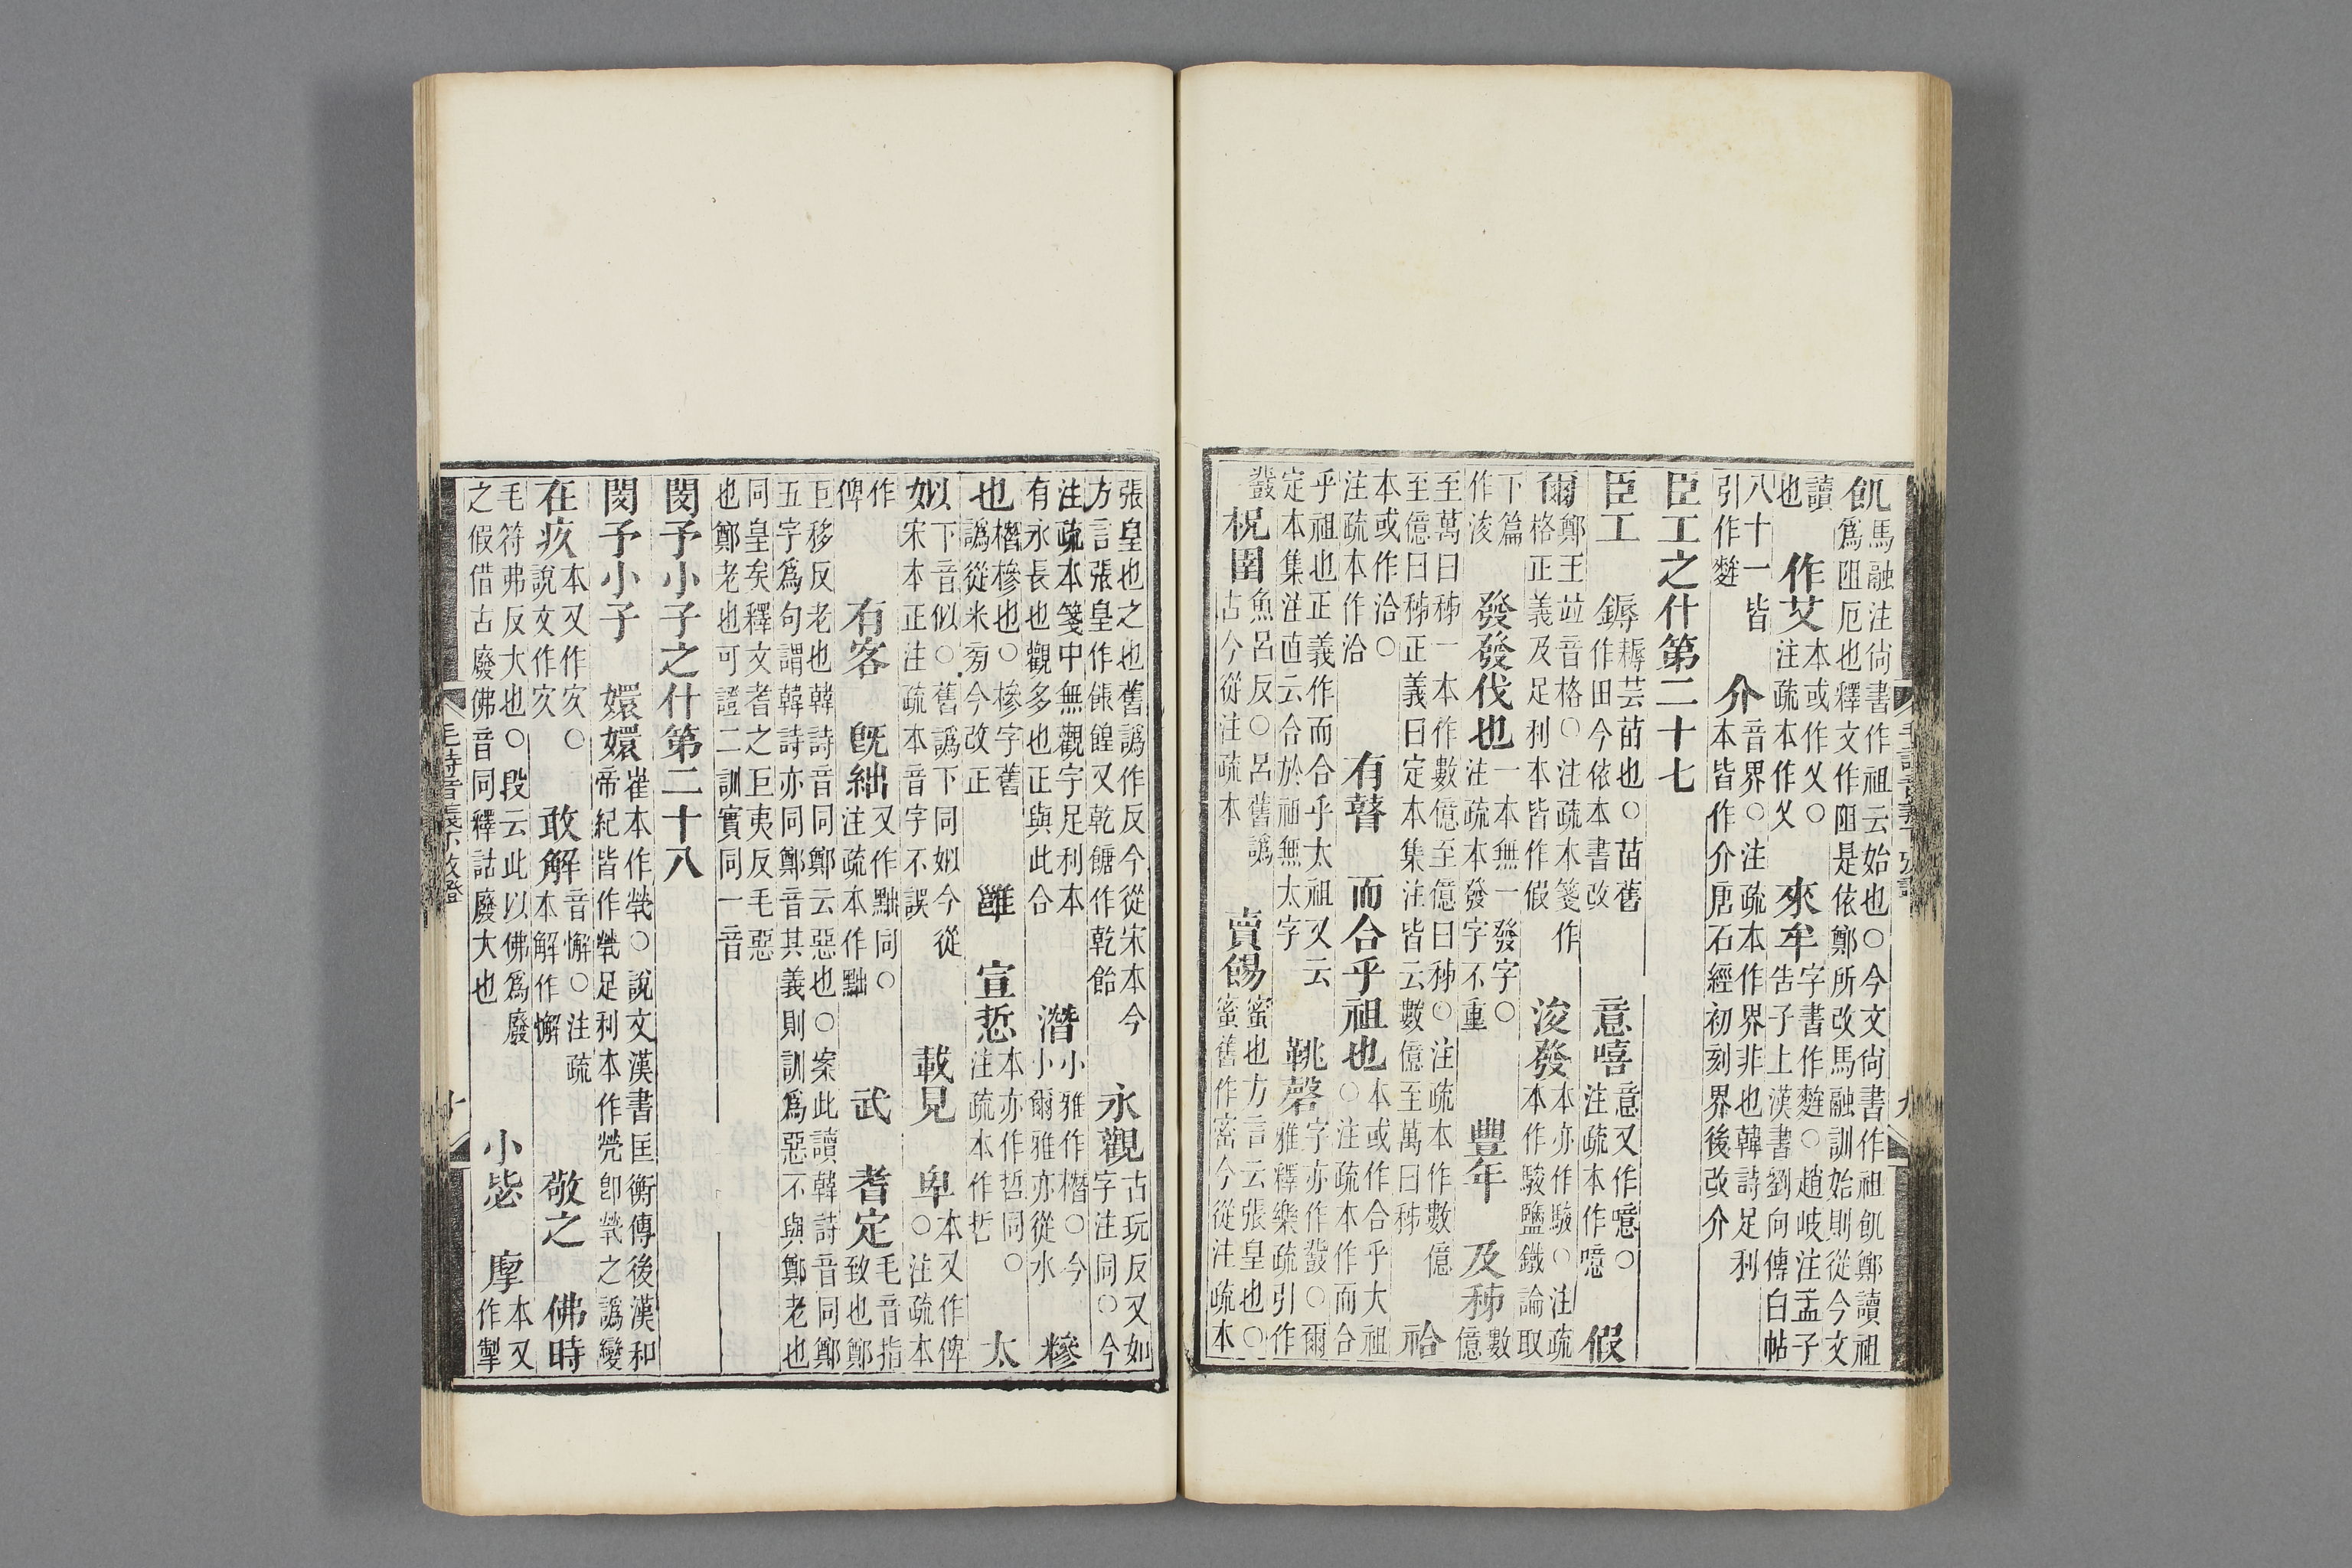 飢馬融注尙書作祖云始也○今文尙書作祖飢鄭讀祖
爲阻厄也釋文作阻是依鄭所改馬融訓始則從今文
讀也 作艾本或作乂○注疏本作乂 來牟字書作䴾○趙岐注孟子告子上漢書劉向傳白帖
八十一皆引作䴾 介音界○注疏本作界非也韓詩足利本皆作介唐石經初刻界後改介
臣工之什第二十七
臣工 鎒耨芸苗也○苗舊作田今依本書改 意嘻意又作噫○注疏本作噫 假
爾鄭王竝音格○注疏本箋作格正義及足利本皆作假 浚發本亦作駿○注疏本作駿鹽鐵論取
下篇作浚 發發伐也一本無一發字○注疏本發字不重 豐年 及秭數億
至萬曰秭一本作數億至億曰秭○注疏本作數億至億曰秭正義曰定本集注皆云數億至萬曰秭 祫
本或作洽○注疏本作洽 有瞽 而合乎祖也本或作合乎大祖○注疏本作而合
乎祖也正義作而合乎太祖又云定本集注直云合於祖無太字 鞉磬字亦作鼗○爾雅釋樂疏引作
鼗 柷圉魚呂反○呂舊譌古今從注疏本 賣餳蜜也方言云張皇也○蜜舊作密今從注疏本
張皇也之也舊譌作反今從宋本今方言張皇作餦餭又乾餹作乾飴 永觀古玩反又如字注同○今
注疏本箋中無觀字足利本有永長也觀多也正與此合 潛小雅作橬○今小爾雅亦從水 糝
也橬糝也○糝字舊譌從米旁今改正 雝 宣悊本亦作哲同○注疏本作哲 太
姒以下音似○舊譌下同姒今從宋本正注疏本音字不誤 載見 卑本又作俾○注疏本
作俾 有客 旣絀又作黜同○注疏本作黜 武 耆定毛音指致也鄭
巨移反老也韓詩音同鄭云惡也○案此讀韓詩音同鄭五字爲句謂韓詩亦同鄭音其義則訓爲惡不與鄭老也
同皇矣釋文耆之巨夷反毛惡也鄭老也可證二訓實同一音
閔予小子之什第二十八
閔予小子 嬛嬛崔本作煢○說文漢書匡衡傳後漢和帝紀皆作煢足利本作㷀卽煢之譌變
在疚本又作㝌○說文作㝌 敢解音懈○注疏本解作懈 敬之 佛時
毛符弗反大也○段云此以佛爲廢之假借古廢佛音同釋詁廢大也 小毖 摩本又作掣